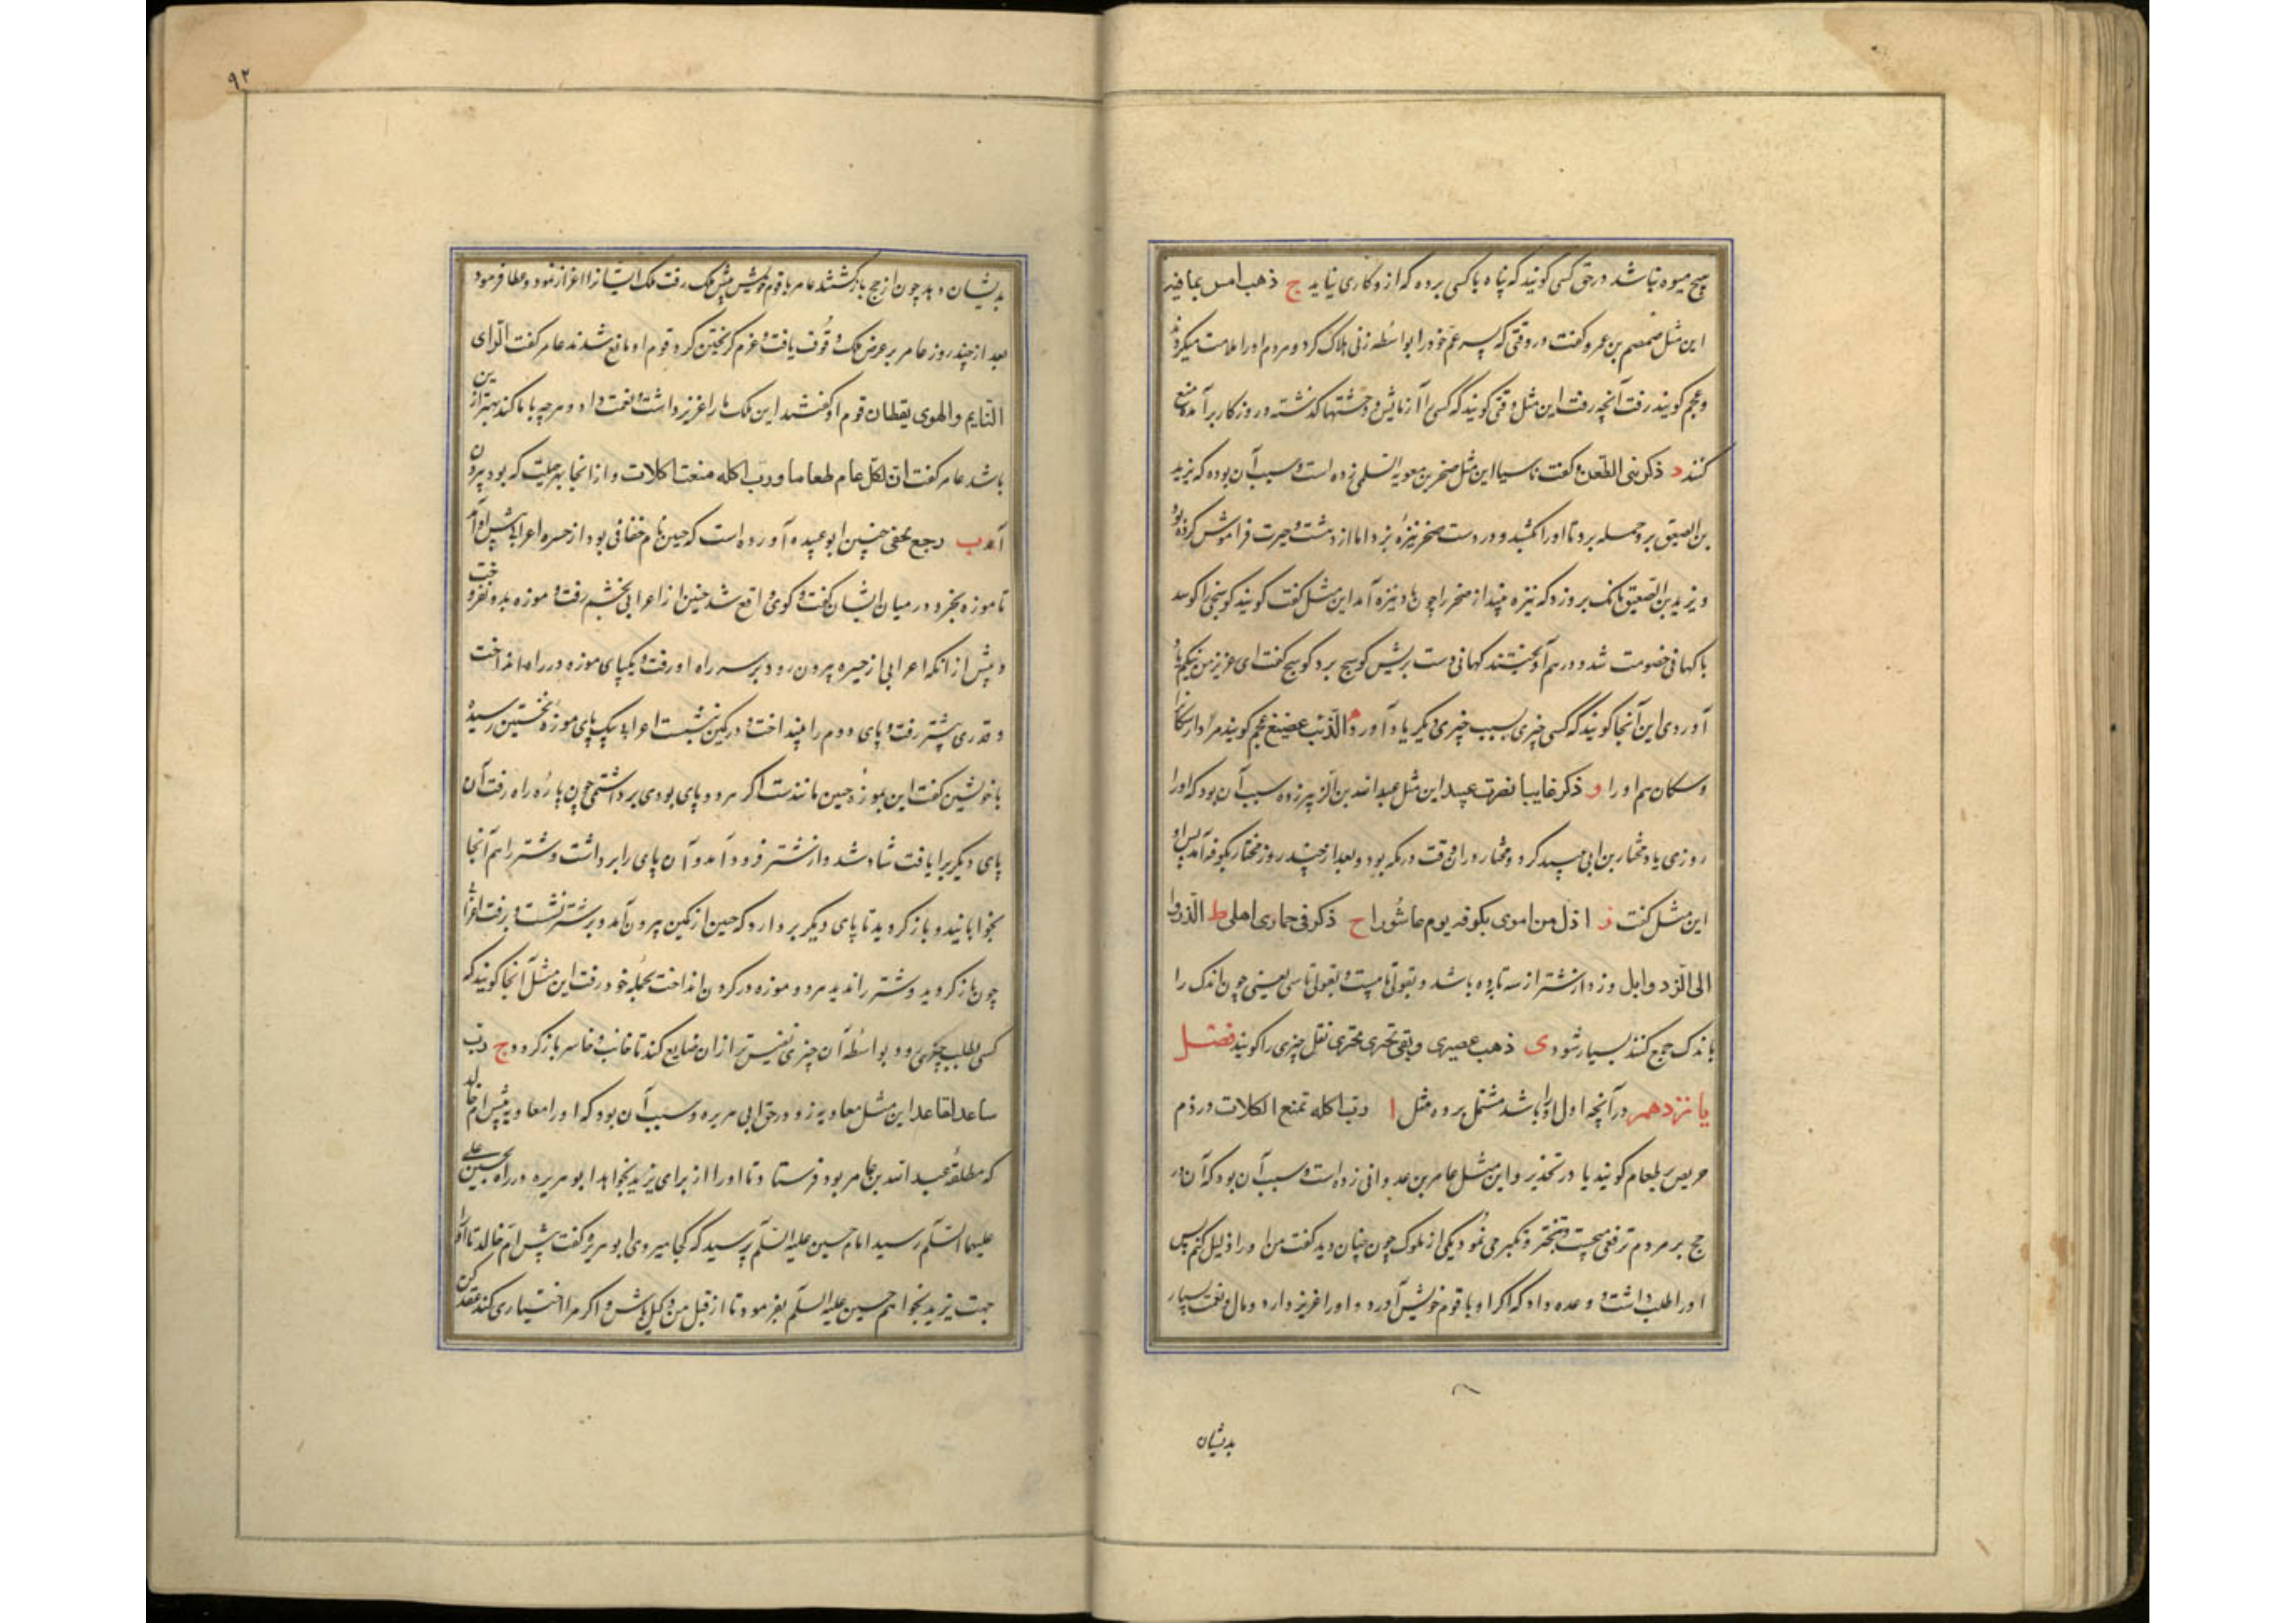 هیچ میوه نباشد در حق کسی گویند که پناه با کسی برده که ازو کاری نیاید ج ذهب امس بما فیه
این مثل ضمضم بن عمرو گفت در وقتی که پسر عم خود را بواسطه زنی هلاک کرد و مردم او را ملامت میکردند
و عجم گویند رفت آنچه رفت این مثل وقتی گویند که کسی را آزمایش و وحشتها گذشته و روزگار برآمده منع
کنند د ذکرنی الطعن و کنت ناسیا این مثل صخر بن معویه السلمی زده است و سبب آن بوده که یزید
بن الصعیق برو حمله برد تا او را بکشد و در دست صخر نیزه بود اما از دهشت و حیرت فراموش کرده بود
و یزید بن الصعیق بانگ برو زد که نیزه بینداز صخر را چون یاد نیزه آمد این مثل گفت گویند کوسجی را کوسه
با کهانی خصومت شد و در هم آویختند کهانی دست بریش کوسج برد کوسج گفت ای عزیز من نیکم یاد
آوردی این آنجا گویند که کسی چیزی بسبب چیزی دیگر یاد آورد ه الذئب عجم گویند
و سکان هم او را و ذکر غایبا تقترب این مثل عبدالله بن الزبیر زده سبب آن بود که او را
روزی یاد مختار بن ابی عبید کرد و مختار در آن وقت در مکه بود و بعد از چند روز مختار بکوفه آمد پس او
این مثل گفت ز اذل من اموی بکوفه یوم عاشورا ح ذکرنی حماری اهلی ط الذود
الی الذود ابل و ذود از شتر از سه تا ده باشد و بقولی تا بیست و بقولی تا سی یعنی چون اندک را
باندک جمع کنند بسیار شود ی ذهب عصیری و بقی ثجیری ثجیری ثفل چیزی را گویند فصل
پانزدهم در آنچه اول او را باشد مشتمل بر ده مثل ا رب اکله تمنع اکلات در ذم
حریص بر طعام گویند یا در تحذیر و این مثل عامر بن عدوانی زده است و سبب آن بود که آن در
حج بر مردم ترفع میجست و تبختر و تکبر می نمود یکی از ملوک چون چنان دید گفت من او را ذلیل کنم پس
او را طلب داشت و وعده داد که اگر او با قوم خویش آورد و او را عزیز دارد و مال و نعمت بسیار
بدیشان
۹۲
بدیشان دهد چون از حج بازگشتند عامر با قوم خویش پیش ملک رفت ملک ایشان را اعزاز نمود و عطا فرمود
بعد از چند روز عامر بر غرض ملک وقوف یافت و عزم گریختن کرد قوم او مانع شدند عامر گفت الرای
النایم و الهوی یقظان قوم او گفتند این ملک ما را عزیز داشت و نعمت داد و هرچه با ما کند بهتر ازین
باشد عامر گفت ان لکل عام طعاما و رب اکله منعت اکلات و از آنجا بهر حیلت که بود بیرون
آمد ب رجع بخفی حنین ابو عبیده آورده است که حنین نام خفافی بود از حیره اعرابی پیش او آمد
تا موزه بخرد در میان ایشان گفت و گوی واقع شد حنین از اعرابی بخشم رفت و موزه بدو نفروخت
و پیش از آنکه اعرابی از حیره بیرون رود بر سر راه او رفت و یکپای موزه در راه انداخت
و قدری پیشتر رفت و پای دوم را بینداخت و در کمین نشست اعرابی بیک پای موزه نخستین رسید
با خویشتن گفت این بموزه حنین مانندست اگر هر دو پای بودی برداشتمی چون پاره راه رفت آن
پای دیگر را یافت شاد شد و از شتر فرود آمد و آن پای را برداشت و شتر را هم آنجا
بخوابانید و باز گردید تا پای دیگر بردارد که حنین از کمین بیرون آمد و بر شتر نشست و برفت اعرابی
چون باز گردید و شتر را ندید هر دو موزه در گردن انداخت بحله خود رفت این مثل آنجا گویند که
کسی بطلب چیزی رود و بواسطه آن چیزی نفیس تر از آن ضایع کند تا خائب و خاسر باز گردد ج رب
ساعد لقاعد این مثل معاویه زد در حق ابی هریره و سبب آن بود که او را معاویه پیش ام خالد
که مطلقه عبدالله بن عامر بود فرستاد تا او را از برای یزید بخواهد ابو هریره در راه بحسین علی
علیهما السلم رسید امام حسین علیه السلم پرسید که کجا میروی ابو هریره گفت پیش ام خالد تا او را
جهت یزید بخواهم حسین علیه السلم بفرمود تا از قبل من وکیل باش و اگر مرا اختیاری کند عقد کن